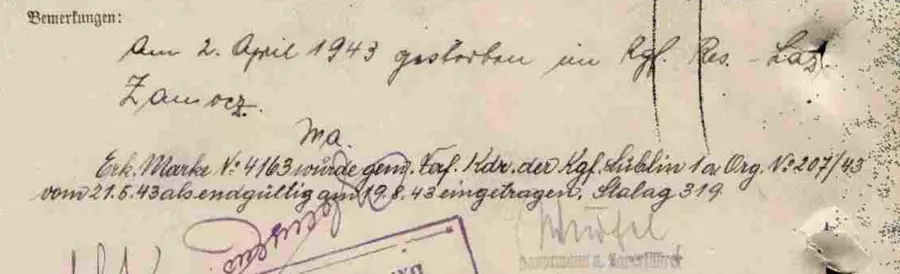 Bemerkungen:
Am 2. April 1943 gestorben im Kgf. Res. - Laz.
Zamocz.
Ma.
Erk. Marke № 4163 wurde gem. Kdr. der Kgf. Lublin 1a Org. № 207/43
vom 21.6.43 als endgültig am 19.8.43 eingetragen. Stalag 319